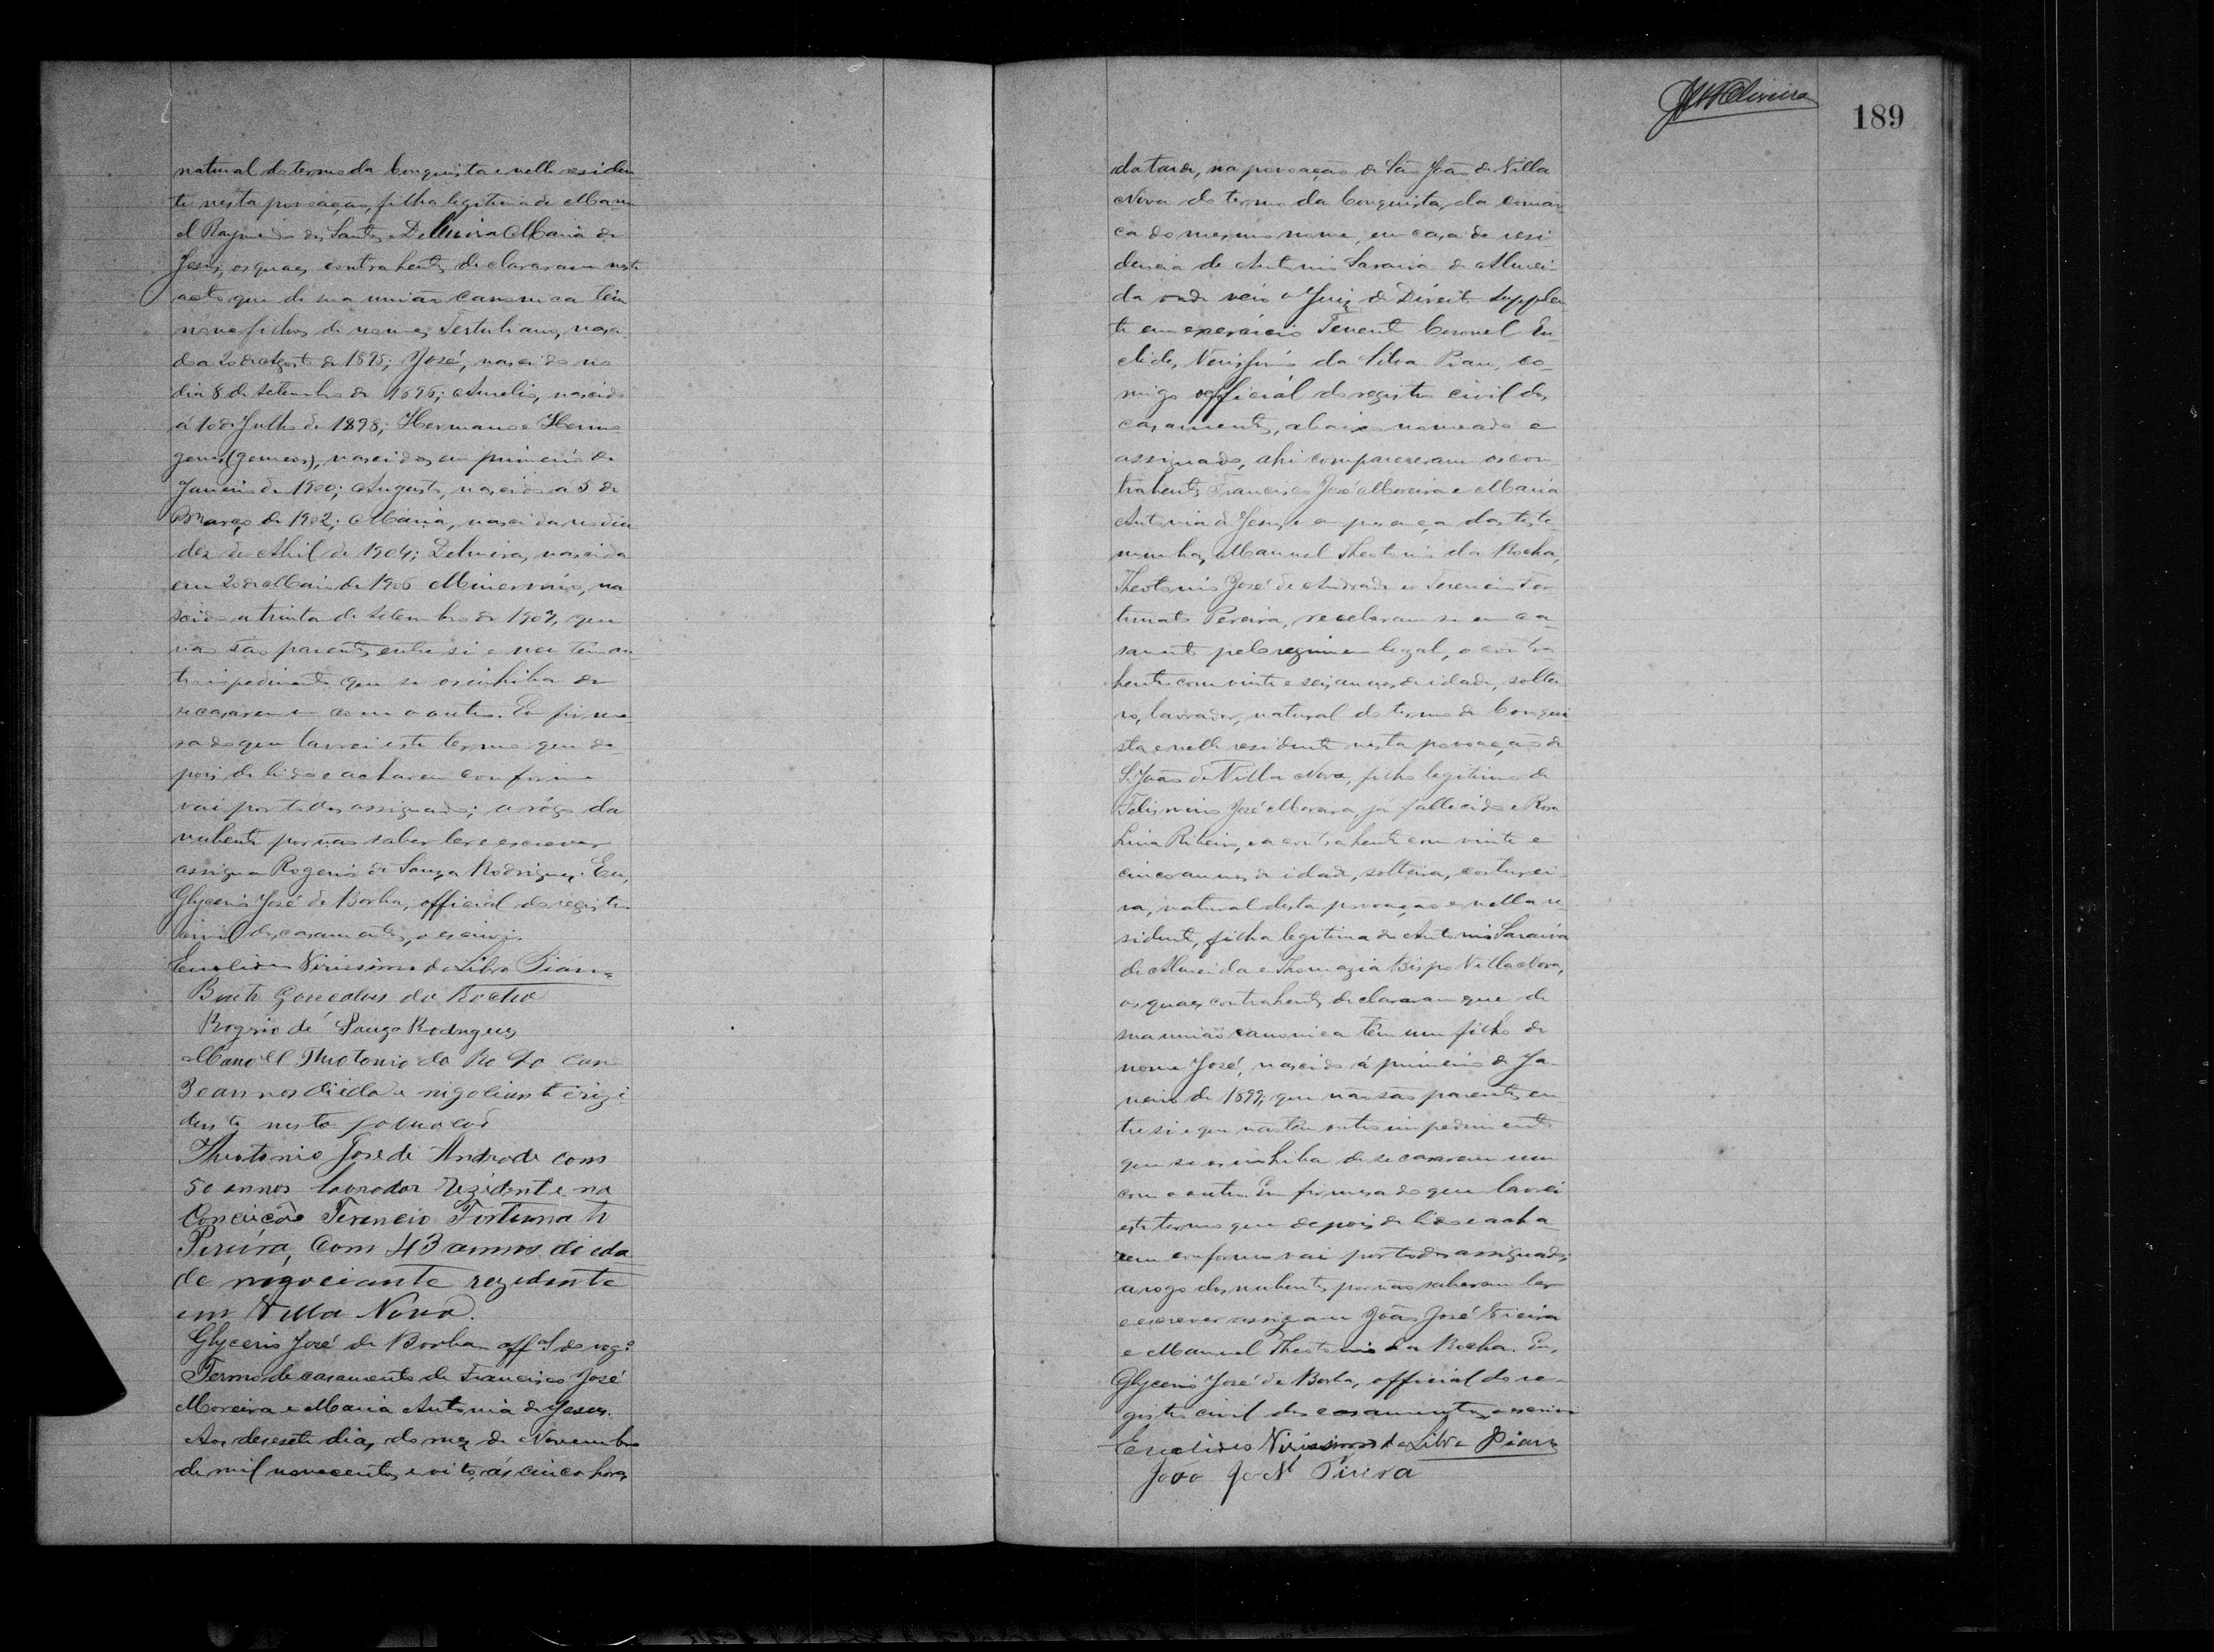 natural do termo da Conquista e nelle residen
te nesta povoação, filha legitima de Mano
el Raymundo dos Santos e Delmira Maria de
Jesus, os quaes contrahentes declararam neste
acto que de sua união canonica têm
nove filhos de nomes Tertuliano, nasci
do a 20 de Agosto de 1895; José, nascido no
dia 8 de Setembro de 1896; Aurelio, nascido
á 10 de Julho de 1898; Hermano e Hermo
genes (gemeos), nascidos em primeiro de
Janeiro de 1900; Augusto, nascido a 5 de
Março de 1902; Maria, nascida no dia
dez de Abril de 1904; Delmira, nascida
em 20 de Maio de 1906 Minervino, na
scido a trinta de Setembro de 1907, que
não são parentes entre si e nem têm ou
tro impedimento que se os inhiba de
se casarem um com o outro. Em firme
sa do que lavrei este termo que de
pois de lido e acharem conforme
vai por todos assignado; a rôgo da
nubente por não saber ler e escrever
assigna Rogerio de Souza Rodrigues. Eu,
Glycerio José de Borba, official do registro
civil dos casamentos, o escrivi.
Euclides Virissimo da Silva Pian
Bento Gonçalves da Rocha
Rogerio de Souza Rodrigues
Manoel Theotonio da Rocha com
30 annos di idade nigoliante rizi
dente nesta povoação
Theotonio José de Andrade com
50 annos lavrador rezidente na
Conceição Terencio Fortunato
Pereira, Com 43 annos di ida
de nigociante rezidente
em Villa Nova.
Glycerio José de Borba offal do rego
Termo de casamento de Francisco José
Moreira e Maria Antonia de Jesus.
Aos desesete dias do mez de Novembro
de mil novecentos e oito, ás cinco horas
JM Oliveira
189
da tarde, na povoação de São João de Villa
Nova do termo da Conquista, da comar
ca do mesmo nome, em casa de resi
dencia de Antonio Saraiva de Almei
da onde veio o Juiz de Direito Supplen
te em exercicio Tenente Coronel Eu
clides Verissimo da Silva Pian, co
migo official do registro civil dos
casamentos, abaixo nomeado e
assignado, ahi compareceram os con
trahentes Francisco José Moreira e Maria
Antonia de Jesus, e em presença das teste
munhas, Manuel Theotonio da Rocha,
Theotonio José de Andrade e Terencio For
tunato Pereira, receberam se em ca
samento pelo regimen legal, o contra
hente com vinte e seis annos de idade, soltei
ro, lavrador, natural do termo de Conqui
sta e nelle residente nesta povoação de
S. João de Villa Nova, filho legitimo de
Felismino José Moreira, já fallecido e Rosa
Lina Ribeiro, e a contrahente com vinte e
cinco annos de idade, solteira, costurei
ra, natural desta povoação e nella re
sidente, filha legitima de Antonio Saraiva
de Almeida e Thomazia Bispo Villa Nova,
os quaes contrahentes declararam que de
sua união canonica têm um filho de
nome José, nascido á primeiro de Ja
neiro de 1899; que não são parentes en
tre si e que não têm outro impedimento
que se os inhiba de se casarem um
com o outro. Em firmesa do que lavrei
este termo que depois de lido e acha
rem conforme vai por todos assignado;
a rogo dos nubentes por não saberem ler
e escrever assignam João José Vieira
e Manuel Theotonio da Rocha. Eu,
Glycerio José de Borba, official do re
gistro civil dos casamentos, o escrivi
Euclides Virissimo da Silva Pian
João José